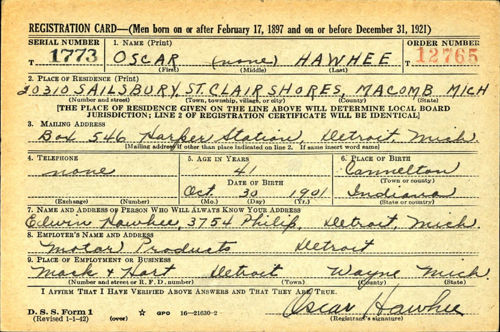 REGISTRATION CARD—(Men born on or after February 17, 1897 and on or before December 31, 1921)
SERIAL NUMBER 1. NAME (Print) ORDER NUMBER
T 1773 OSCAR (none) HAWHEE T 12765
(First) (Middle) (Last)
2. PLACE OF RESIDENCE (Print)
20310 SAILSBURY, ST. CLAIR SHORES, MACOMB MICH
(Number and street) (Town, township, village, or city) (County) (State)
[THE PLACE OF RESIDENCE GIVEN ON THE LINE ABOVE WILL DETERMINE LOCAL BOARD
JURISDICTION; LINE 2 OF REGISTRATION CERTIFICATE WILL BE IDENTICAL]
3. MAILING ADDRESS
Box 546 Harper Station, Detroit, Mich
(Mailing address if other than place indicated on line 2. If same insert word same)
4. TELEPHONE 5. AGE IN YEARS 6. PLACE OF BIRTH
none 41 Cannelton
DATE OF BIRTH (Town or county)
Oct 30 1901 Indiana
(Exchange) (Number) (Mo.) (Day) (Yr.) (State or country)
7. NAME AND ADDRESS OF PERSON WHO WILL ALWAYS KNOW YOUR ADDRESS
Edwin Hawhee, 3754 Philip, Detroit, Mich.
8. EMPLOYER'S NAME AND ADDRESS
Motor Products Detroit
9. PLACE OF EMPLOYMENT OR BUSINESS
Mack & Hart Detroit Wayne Mich.
(Number and street or R. F. D. number) (Town) (County) (State)
I AFFIRM THAT I HAVE VERIFIED ABOVE ANSWERS AND THAT THEY ARE TRUE.
D. S. S. Form 1
(Revised 1-1-42) (over) ☆ GPO 16—21630-2 Oscar Hawhee
(Registrant's signature)